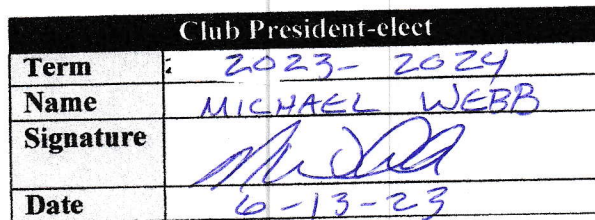 Club President-elect
Term : 2023- 2024
Name MICHAEL WEBB
Signature
Date 6-13-23